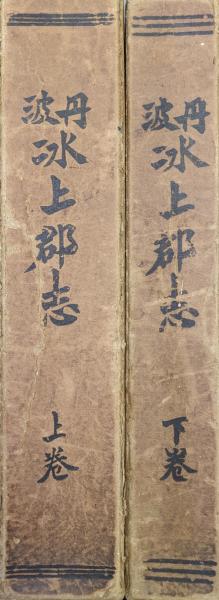 丹波
氷上郡志
上巻
丹波
氷上郡志
下巻